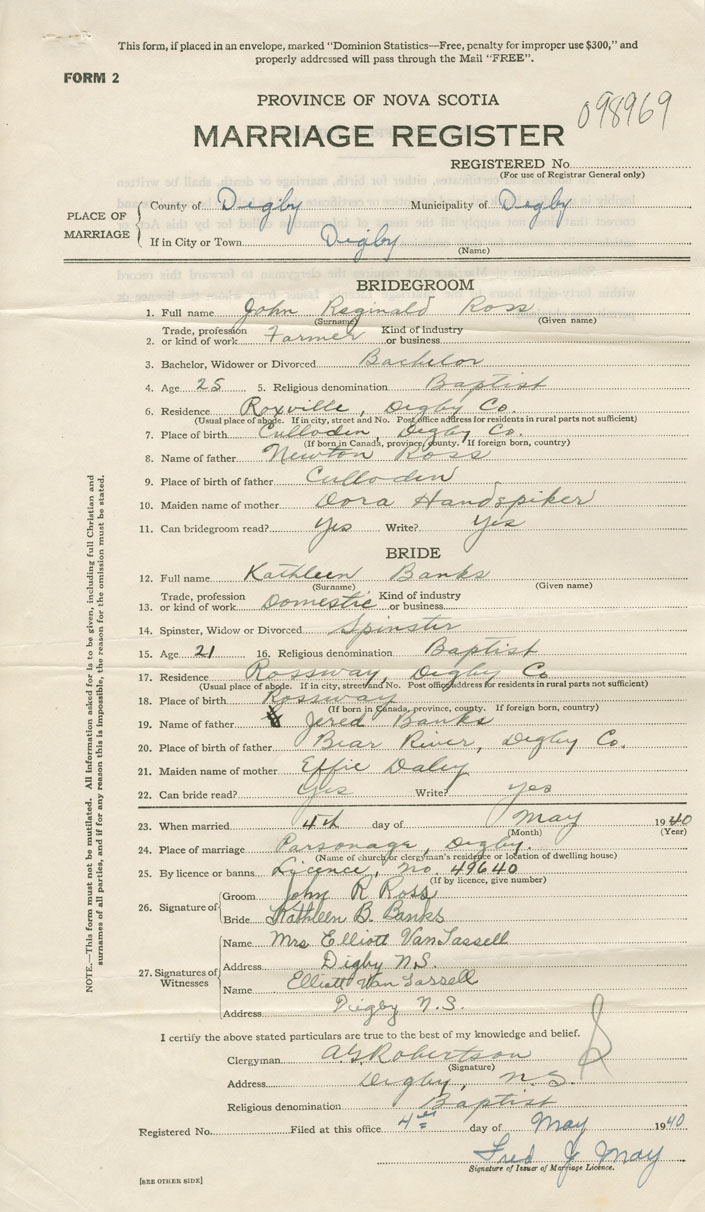 This form, if placed in an envelope, marked "Dominion Statistics—Free, penalty for improper use $300," and
properly addressed will pass through the Mail "FREE".
FORM 2
PROVINCE OF NOVA SCOTIA
098969
MARRIAGE REGISTER
REGISTERED No.
(For use of Registrar General only)
PLACE OF MARRIAGE
County of Digby Municipality of Digby
If in City or Town Digby
(Name)
BRIDEGROOM
1. Full name John Reginald Ross
(Surname) (Given name)
2. Trade, profession or kind of work Farmer Kind of industry or business
3. Bachelor, Widower or Divorced Bachelor
4. Age 25 5. Religious denomination Baptist
6. Residence Roxville, Digby Co.
(Usual place of abode. If in city, street and No. Post office address for residents in rural parts not sufficient)
7. Place of birth Culloden, Digby Co.
(If born in Canada, province, county. If foreign born, country)
8. Name of father Newton Ross
9. Place of birth of father Culloden
10. Maiden name of mother Dora Handspiker
11. Can bridegroom read? Yes Write? Yes
BRIDE
12. Full name Kathleen Banks
(Surname) (Given name)
13. Trade, profession or kind of work Domestic Kind of industry or business
14. Spinster, Widow or Divorced Spinster
15. Age 21 16. Religious denomination Baptist
17. Residence Rossway, Digby Co
(Usual place of abode. If in city, street and No. Post office address for residents in rural parts not sufficient)
18. Place of birth Rossway
(If born in Canada, province, county. If foreign born, country)
19. Name of father Jered Banks
20. Place of birth of father Bear River, Digby Co.
21. Maiden name of mother Effie Daley
22. Can bride read? Yes Write? Yes
23. When married 4th day of May 1940
(Month) (Year)
24. Place of marriage Parsonage, Digby.
(Name of church or clergyman's residence or location of dwelling house)
25. By licence or banns Licence, No. 49640
(If by licence, give number)
26. Signature of
Groom John R Ross
Bride Kathleen B. Banks
27. Signatures of Witnesses
Name Mrs Elliott VanTassell
Address Digby N.S.
Name Elliott Van Tassell
Address Digby N.S.
I certify the above stated particulars are true to the best of my knowledge and belief.
Clergyman A G Robertson
(Signature)
Address Digby, N.S.
Religious denomination Baptist
Registered No. Filed at this office 4th day of May 1940
Fred J May
Signature of Issuer of Marriage Licence.
[SEE OTHER SIDE]
NOTE.—This form must not be mutilated. All information asked for is to be given, including full Christian and
surnames of all parties, and if for any reason this is impossible, the reason for the omission must be stated.